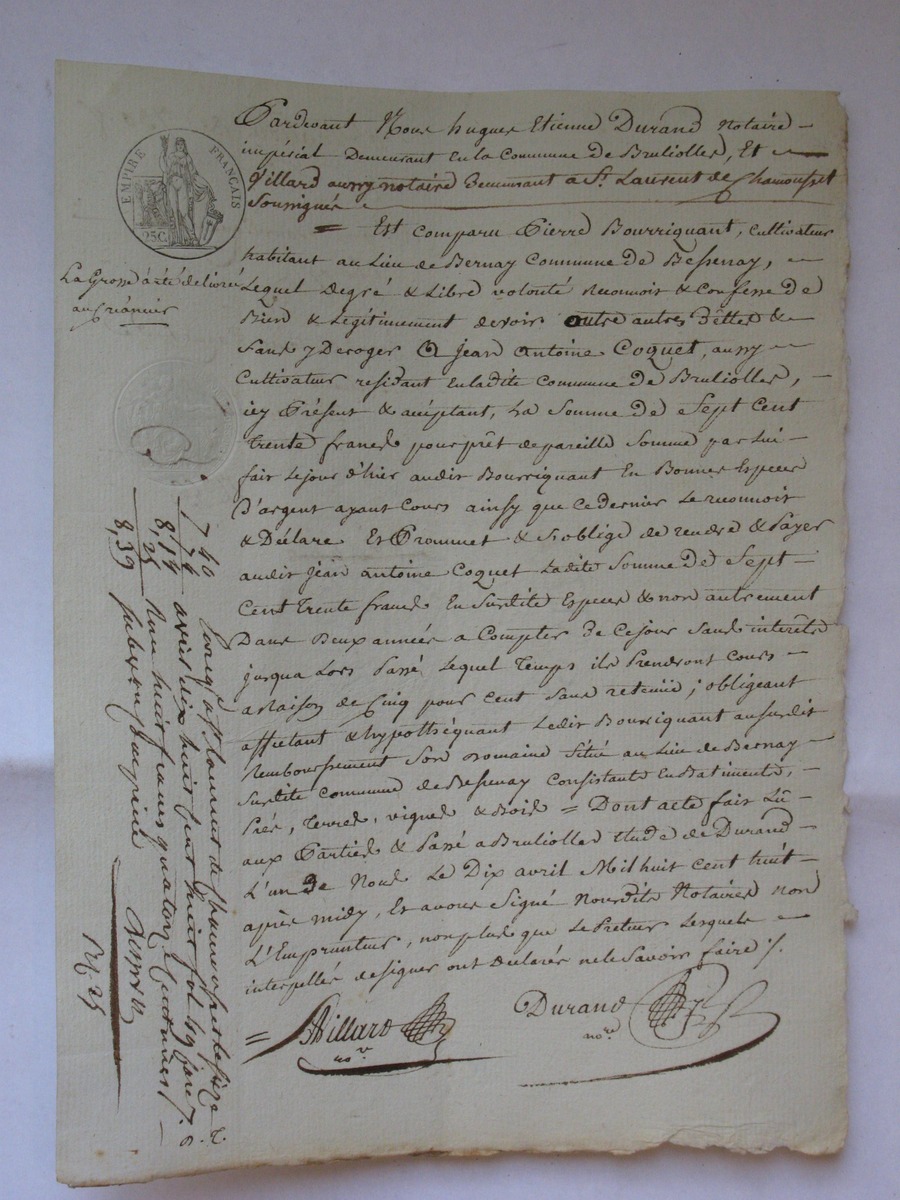 EMPIRE FRANÇAIS
25C.
Pardevant Nous hugues Etienne Durand Notaire
impérial Demeurant En la Commune de Brulioles, Et
Villard aussy notaire Demeurant a St. Laurent de Chamousset
Soussignés
= Est comparu Pierre Bourriquant, Cultivateur
habitant au Lieu de Bernay Commune De Bessenay,
Lequel Degré & Libre volonté Reconnoit & Confesse De
Bien & Légitimement devoir outre autres Dettes &
Sans y Deroger A Jean Antoine Coquet, aussy
Cultivateur residant En ladite Commune De Brulioles,
icy Présent & acceptant, La Somme De Sept Cent
Trente francs pour prêt de pareille Somme par Lui
fait Le jour d'hier audit Bourriquant En Bonnes Especes
D'argent ayant Cours ainsy que Ce dernier Le reconnoit
& Déclare Et Prommet & S'oblige de rendre & Payer
audit Jean antoine Coquet Ladite Somme De Sept
Cent Trente francs En Susdite Especes & non autrement
Dans Deux années a Compter De Ce jour Sans interêts
jusqua Lors Passé Lequel Temps ils Prendront Cours
a Raison de Cinq pour Cent Sans retenue ; obligeant
affectant & hypothéquant Ledit Bourriquant au susdit
Remboursement Son Domaine Situé au Lieu de Bernay
Susdite Commune de Bessenay Consistant En Batiments,
Prés, Terres, vignes & Bois = Dont acte fait Lû
aux Parties & Passé a Brulioles Etude de Durand
L'un De Nous Le Dix avril Mil huit Cent huit
après midy, Et avons Signé Nousdits Notaires non
L'Emprunteur, non plus que Le Preteur Lesquels
interpellés de signer ont Déclarés ne le Savoir faire ./.
= Villard
nore
Durand
nore
La Grosse a été délivrée
au Créancier
7 40
74
8, 14
25
8, 39
St laurent de Chamousset le
avril dix huit cent huit fol 69
Reçu huit francs quatorze Centimes
subvention comprise